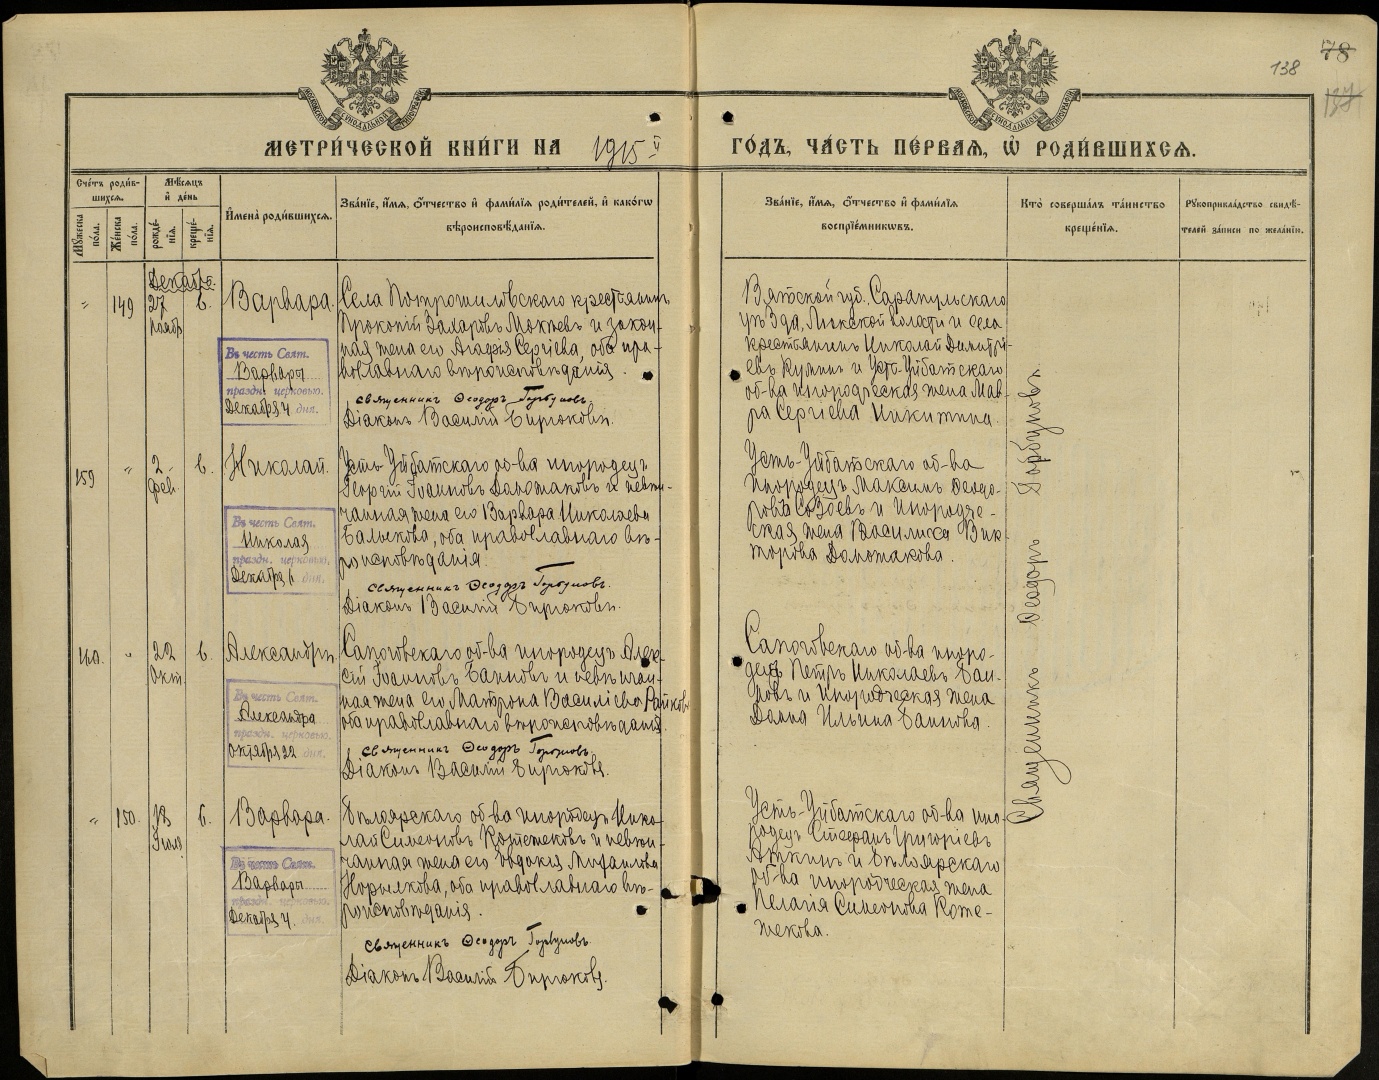 138
78
137
МЕТРИ́ЧЕСКОЙ КНИ́ГИ НА 1915 й
ГО́ДЪ, ЧА́СТЬ ПЕ́РВАЯ, Ѡ҆ РОДИ́ВШИХСЯ.
Сче́тъ роди́в-
шихся.
Мꙋ́жеска по́ла.
Же́нска по́ла.
Мѣ́сяцъ и҆ де́нь
рожде́-
нїя.
креще́-
нїя.
И҆мена̀ роди́вшихся.
Зва́нїе, и҆́мя, ѻ҆́тчество и҆ фами́лїя роди́телей, и҆ како́гѡ
вѣроисповѣ́данїя.
Зва́нїе, и҆́мя, ѻ҆́тчество и҆ фами́лїя
воспрїе́мникѡвъ.
Кто̀ соверша́лъ та́инство
креще́нїя.
Рꙋкоприкла́дство свидѣ́-
телей за́писи по жела́нїю.
Декабрь
" 149 27 6. Варвара.
ноябр
Въ честь Свят.
Варвары
праздн. церковью.
Декабря 4 дня.
Села крестьянинъ
Прокопій Захаровъ Мокѣевъ и закон-
ная жена его Агафія Сергіева, оба пра-
вославнаго вѣроисповѣданія.
священникъ Ѳеодоръ Горбуновъ.
Діаконъ Василій Бирюковъ.
Вятской губ. Сарапульскаго
уѣзда, волости и села
крестьянинъ Николай Димитрі-
евъ и Усть-Уйбатскаго
об-ва инородческая жена Мав-
ра Сергіева Никитина.
159 " 2 6. Николай.
Фев.
Въ честь Свят.
Николая
праздн. церковью.
Декабря 6 дня.
Усть-Уйбатскаго об-ва инородецъ
Георгій Іоанновъ Доможаковъ и невѣн-
чанная жена его Варвара Николаева
оба православнаго вѣ-
роисповѣданія.
священникъ Ѳеодоръ Горбуновъ.
Діаконъ Василій Бирюковъ.
Усть-Уйбатскаго об-ва
Инородецъ Максимъ Ѳеодо-
ровъ и Инородче-
ская жена Василиса Вик-
торова Доможакова.
160. " 22 6. Александръ.
Окт.
Въ честь Свят.
Александра
праздн. церковью.
Октября 22 дня.
Сапоговскаго об-ва инородецъ Алек-
сій Іоанновъ Баиновъ и невѣнчан-
ная жена его Матрона Василіева
оба православнаго вѣроисповѣданія
священникъ Ѳеодоръ Горбуновъ.
Діаконъ Василій Бирюковъ.
Сапоговскаго об-ва иноро-
децъ Петръ Николаевъ Баи-
новъ и инородческая жена
Домна Ильина Баинова.
" 150. 18 6. Варвара.
Іюля
Въ честь Свят.
Варвары
праздн. церковью.
Декабря 4. дня.
Бѣлоярскаго об-ва инородецъ Нико-
лай Симеоновъ Кожежековъ и невѣн-
чанная жена его Евдокія Михаилова
Норылкова, оба православнаго вѣ-
роисповѣданія.
священникъ Ѳеодоръ Горбуновъ.
Діаконъ Василій Бирюковъ.
Усть-Уйбатскаго об-ва ино-
родецъ Стефанъ Григоріевъ
и Бѣлоярскаго
об-ва инородческая жена
Пелагія Симеонова Коже-
жекова.
Священникъ Ѳеодоръ Горбуновъ